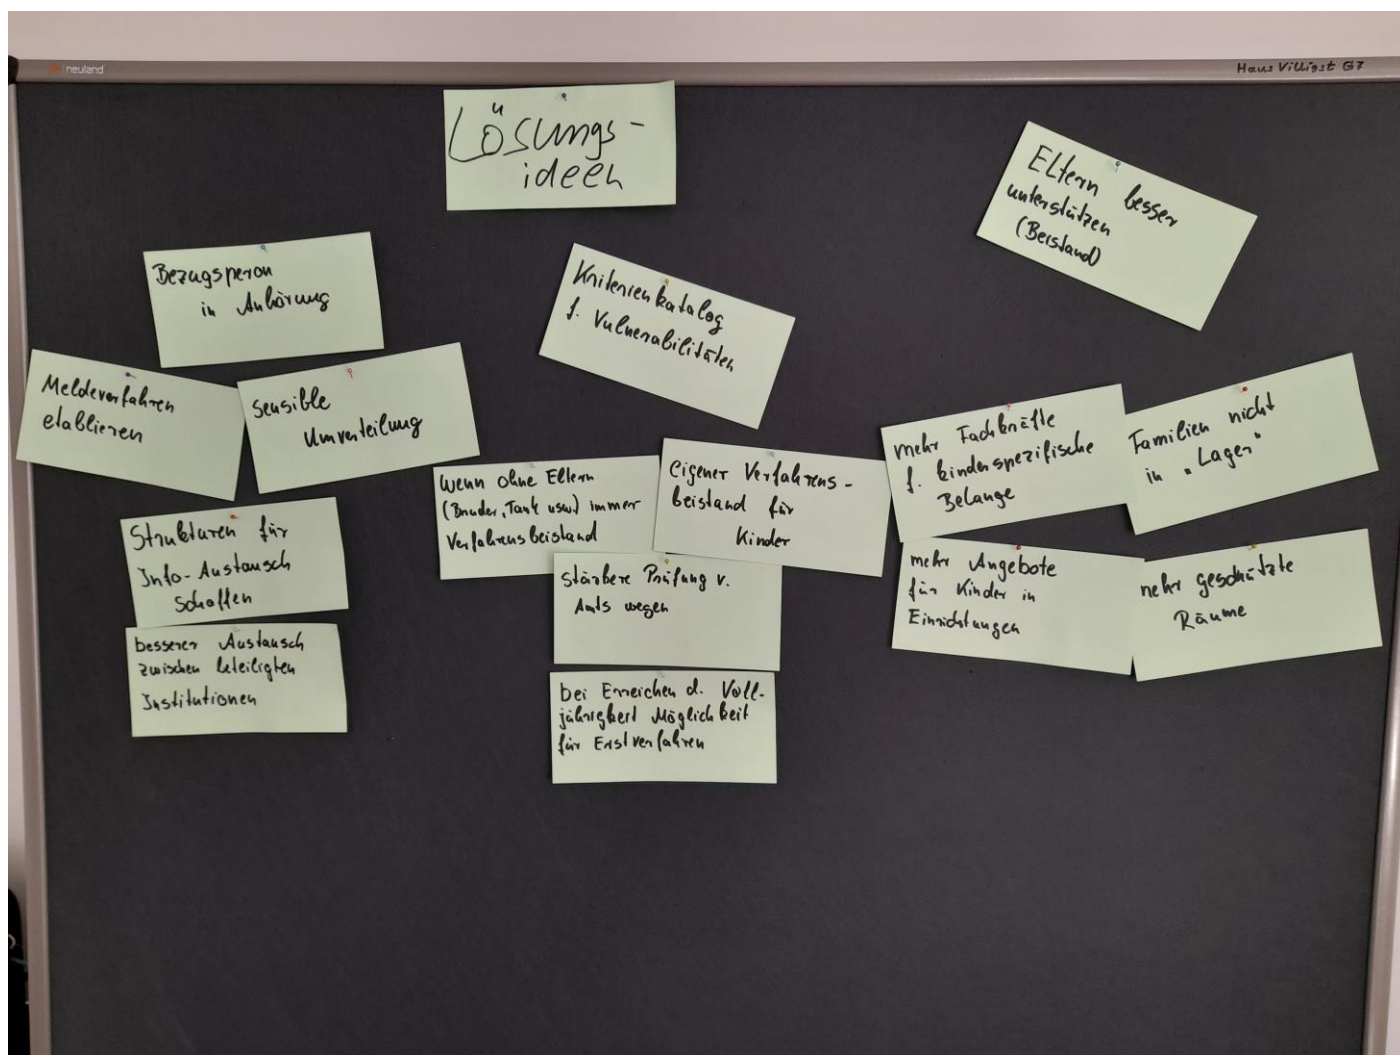 neuland
Haus Villigst G7
Lösungs-
ideen
Eltern besser
unterstützen
(Beistand)
Bezugsperson
in Anhörung
Kriterienkatalog
f. Vulnerabilitäten
Meldeverfahren
etablieren
sensible
Umverteilung
mehr Fachkräfte
f. kinderspezifische
Belange
Familien nicht
in „Lager“
Wenn ohne Eltern
(Bruder, Tante usw.) immer
Verfahrensbeistand
eigener Verfahrens-
beistand für
Kinder
Strukturen für
Info-Austausch
Schaffen
stärkere Prüfung v.
Amts wegen
mehr Angebote
für Kinder in
Einrichtungen
mehr geschützte
Räume
besserer Austausch
zwischen beteiligten
Institutionen
bei Erreichen d. Voll-
jährigkeit Möglichkeit
für Erstverfahren